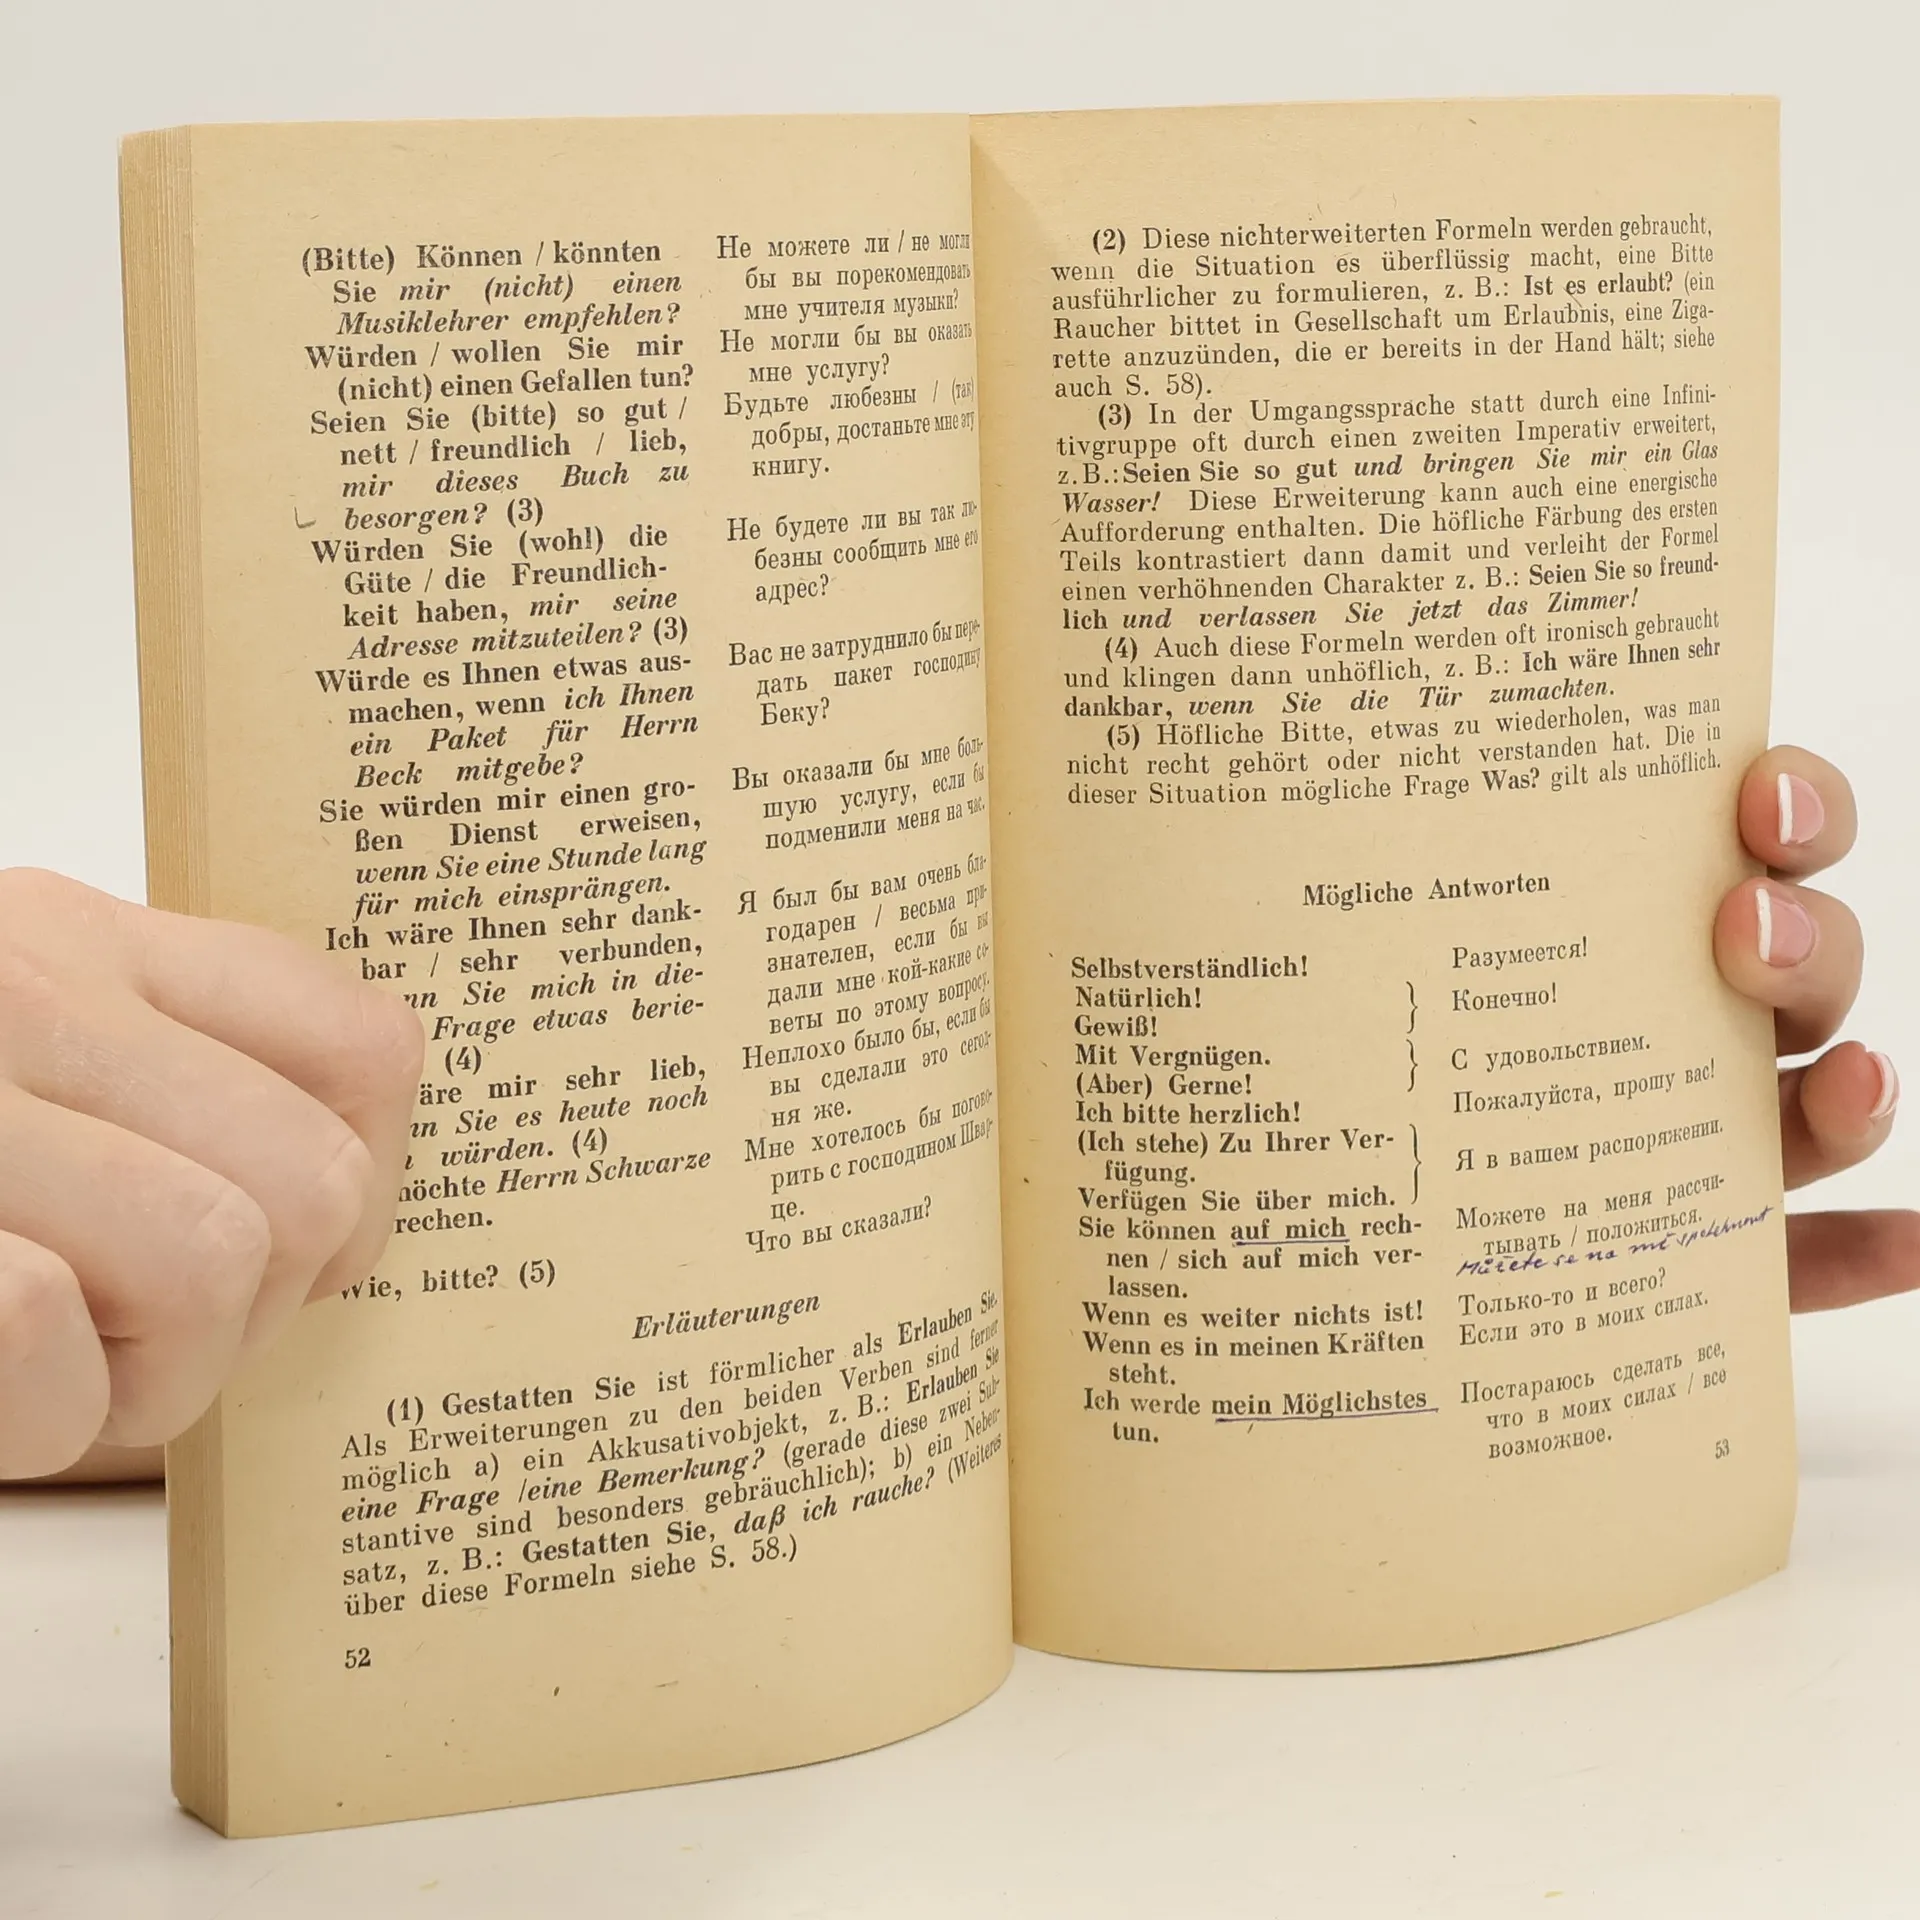 (Bitte) Können / könnten
Sie mir (nicht) einen
Musiklehrer empfehlen?
Würden / wollen Sie mir
(nicht) einen Gefallen tun?
Seien Sie (bitte) so gut /
nett / freundlich / lieb,
mir dieses Buch zu
besorgen? (3)
Würden Sie (wohl) die
Güte / die Freundlich-
keit haben, mir seine
Adresse mitzuteilen? (3)
Würde es Ihnen etwas aus-
machen, wenn ich Ihnen
ein Paket für Herrn
Beck mitgebe?
Sie würden mir einen gro-
ßen Dienst erweisen,
wenn Sie eine Stunde lang
für mich einsprängen.
Ich wäre Ihnen sehr dank-
bar / sehr verbunden,
Sie mich in die-
Frage etwas berie-
(4)
mir sehr lieb,
Sie es heute noch
würden. (4)
Herrn Schwarze
Wie, bitte? (5)
Не можете ли / не могли
бы вы порекомендовать
мне учителя музыки?
Не могли бы вы оказать
мне услугу?
Будьте любезны / (так)
добры, достаньте мне эту
книгу.
Не будете ли вы так лю-
безны сообщить мне его
адрес?
Вас не затруднило бы пере-
дать пакет господину
Беку?
Вы оказали бы мне боль-
шую услугу, если бы
подменили меня на час.
Я был бы вам очень бла-
годарен / весьма при-
знателен, если бы вы
дали мне кой-какие со-
веты по этому вопросу.
Неплохо было бы, если бы
вы сделали это сегод-
ня же.
Мне хотелось бы погово-
рить с господином Швар-
це.
Что вы сказали?
Erläuterungen
(1) Gestatten Sie ist förmlicher als Erlauben Sie.
Als Erweiterungen zu den beiden Verben sind ferner
möglich a) ein Akkusativobjekt, z. B.: Erlauben Sie
eine Frage /eine Bemerkung? (gerade diese zwei Sub-
stantive sind besonders gebräuchlich); b) ein Neben-
satz, z. B.: Gestatten Sie, daß ich rauche? (Weiteres
über diese Formeln siehe S. 58.)
52
(2) Diese nichterweiterten Formeln werden gebraucht,
wenn die Situation es überflüssig macht, eine Bitte
ausführlicher zu formulieren, z. B.: Ist es erlaubt? (ein
Raucher bittet in Gesellschaft um Erlaubnis, eine Ziga-
rette anzuzünden, die er bereits in der Hand hält; siehe
auch S. 58).
(3) In der Umgangssprache statt durch eine Infini-
tivgruppe oft durch einen zweiten Imperativ erweitert,
z.B.: Seien Sie so gut und bringen Sie mir ein Glas
Wasser! Diese Erweiterung kann auch eine energische
Aufforderung enthalten. Die höfliche Färbung des ersten
Teils kontrastiert dann damit und verleiht der Formel
einen verhöhnenden Charakter z. B.: Seien Sie so freund-
lich und verlassen Sie jetzt das Zimmer!
(4) Auch diese Formeln werden oft ironisch gebraucht
und klingen dann unhöflich, z. B.: Ich wäre Ihnen sehr
dankbar, wenn Sie die Tür zumachten.
(5) Höfliche Bitte, etwas zu wiederholen, was man
nicht recht gehört oder nicht verstanden hat. Die in
dieser Situation mögliche Frage Was? gilt als unhöflich.
Mögliche Antworten
Selbstverständlich!
Natürlich!
Gewiß!
Mit Vergnügen.
(Aber) Gerne!
Ich bitte herzlich!
(Ich stehe) Zu Ihrer Ver-
fügung.
Verfügen Sie über mich.
Sie können auf mich rech-
nen / sich auf mich ver-
lassen.
Wenn es weiter nichts ist!
Wenn es in meinen Kräften
steht.
Ich werde mein Möglichstes
tun.
Разумеется!
Конечно!
С удовольствием.
Пожалуйста, прошу вас!
Я в вашем распоряжении.
Можете на меня рассчи-
тывать / положиться.
Můžete se na mě spolehnout
Только-то и всего?
Если это в моих силах.
Постараюсь сделать все,
что в моих силах / все
возможное.
53